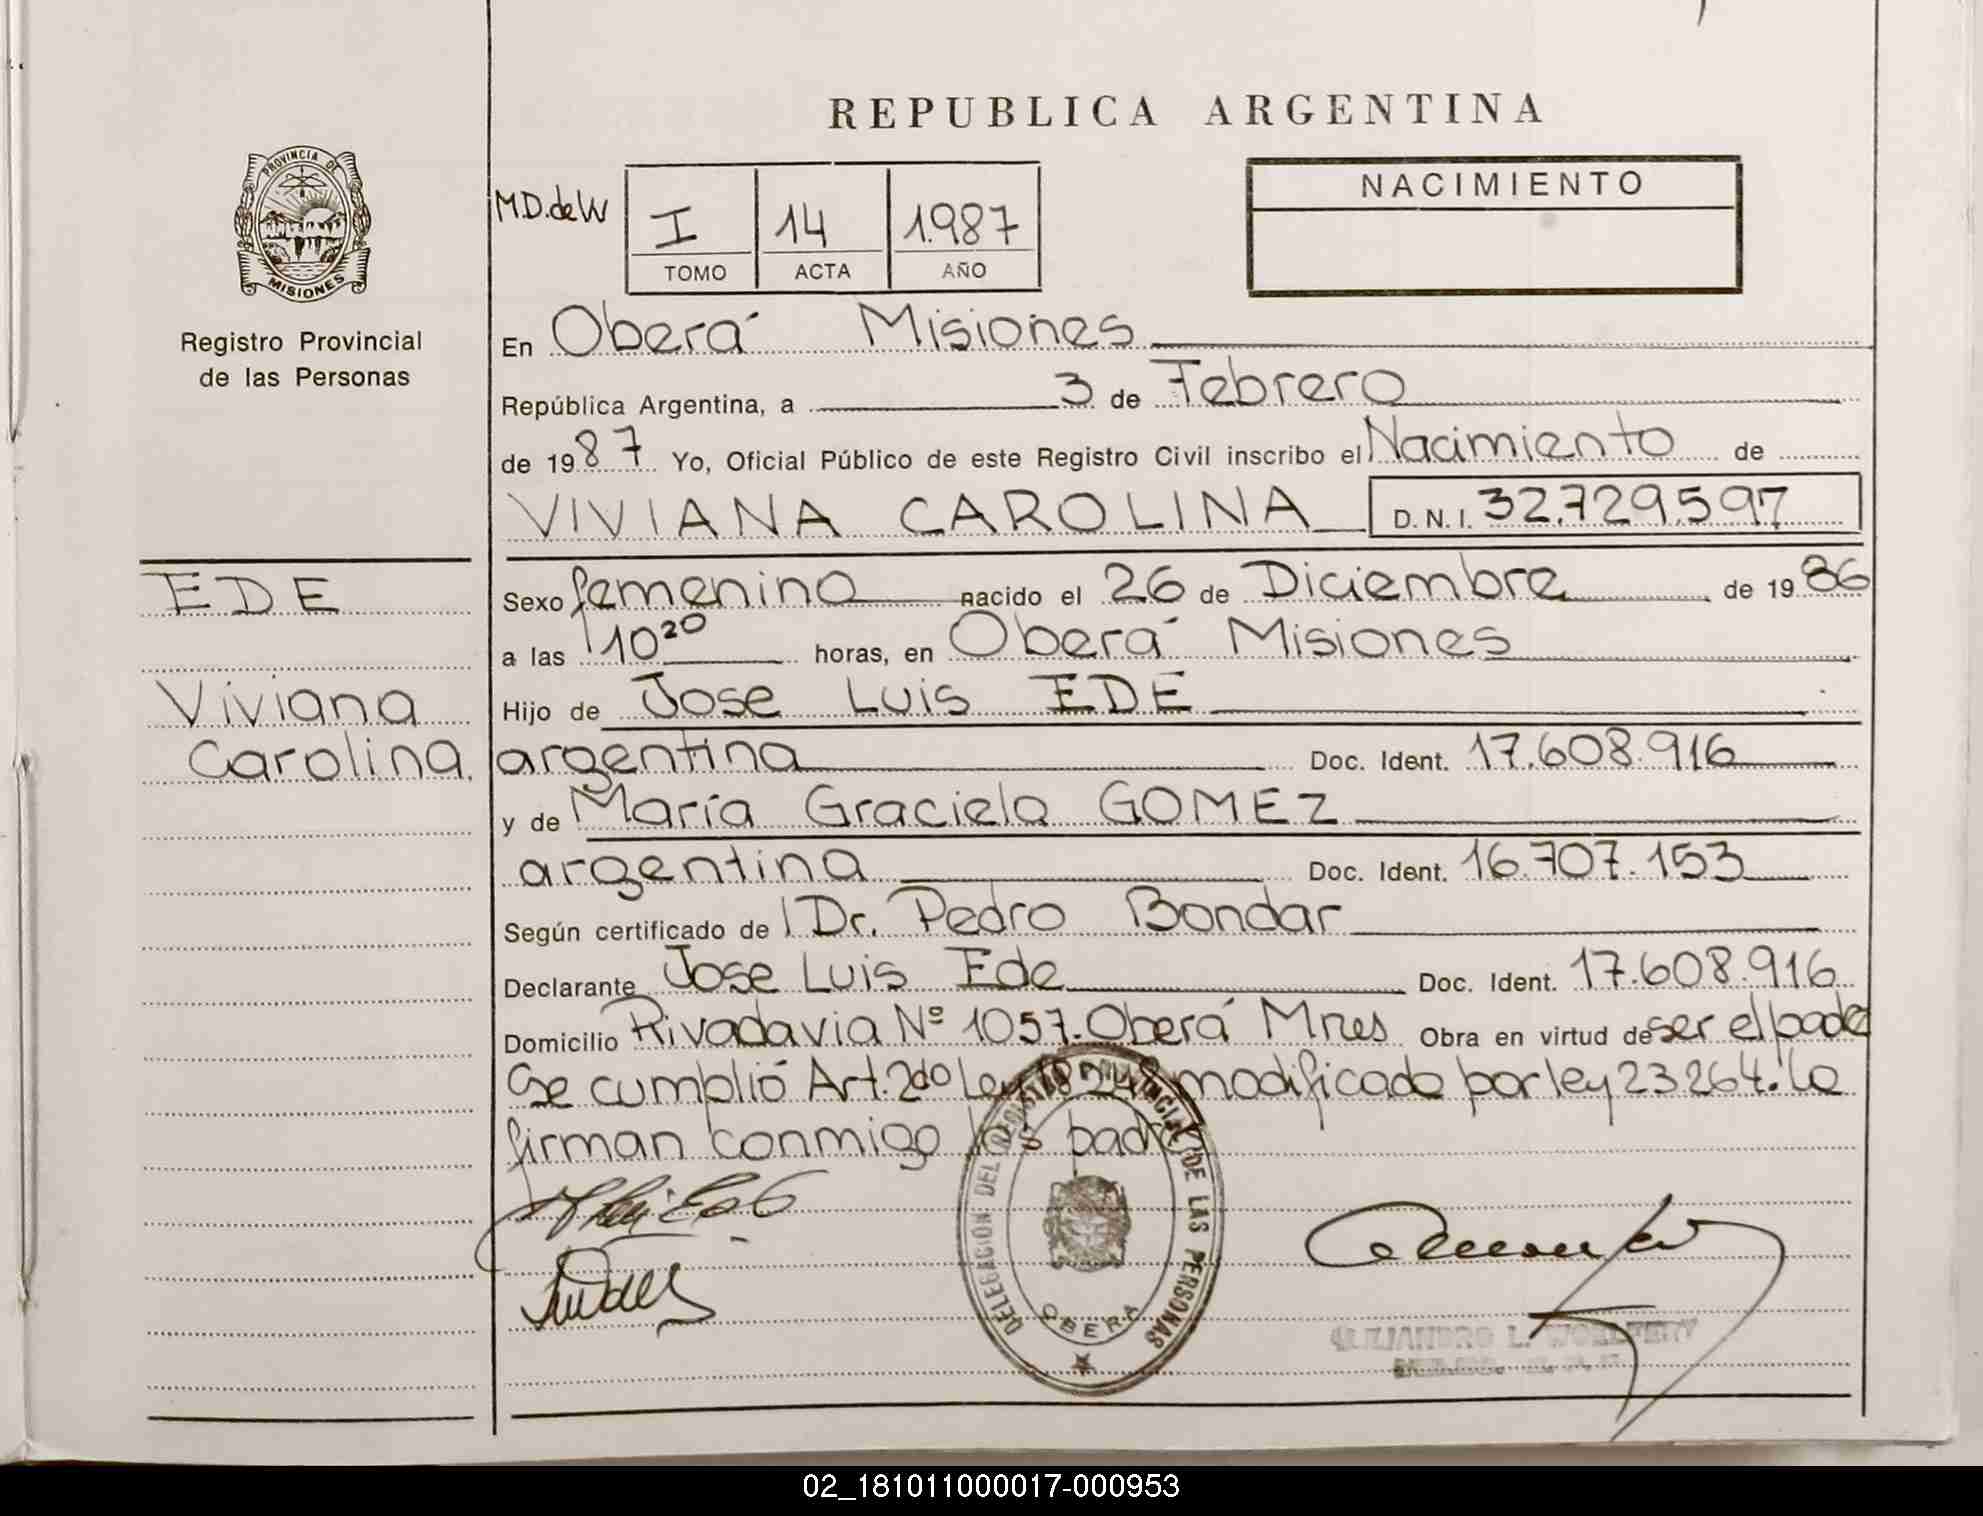 REPUBLICA ARGENTINA
PROVINCIA DE
MISIONES
Registro Provincial
de las Personas
M.D. de W
I 14 1.987
TOMO ACTA AÑO
NACIMIENTO
En Oberá Misiones
República Argentina, a 3 de Febrero
de 1987 Yo, Oficial Público de este Registro Civil inscribo el Nacimiento de
VIVIANA CAROLINA D.N.I. 32.729.597
EDE
Viviana
Carolina
Sexo femenino nacido el 26 de Diciembre de 1986
a las 10²⁰ horas, en Oberá Misiones
Hijo de Jose Luis EDE
argentina Doc. Ident. 17.608.916
y de María Graciela GOMEZ
argentina Doc. Ident. 16.707.153
Según certificado de Dr. Pedro Bondar
Declarante Jose Luis Ede Doc. Ident. 17.608.916
Domicilio Rivadavia Nº 1057. Oberá Mnes Obra en virtud de ser el padre
Se cumplió Art. 2do Ley 18.248 modificada por ley 23.264. Le
firman conmigo los padres
DELEGACION DEL REGISTRO PROVINCIAL DE LAS PERSONAS
OBERA
02_181011000017-000953